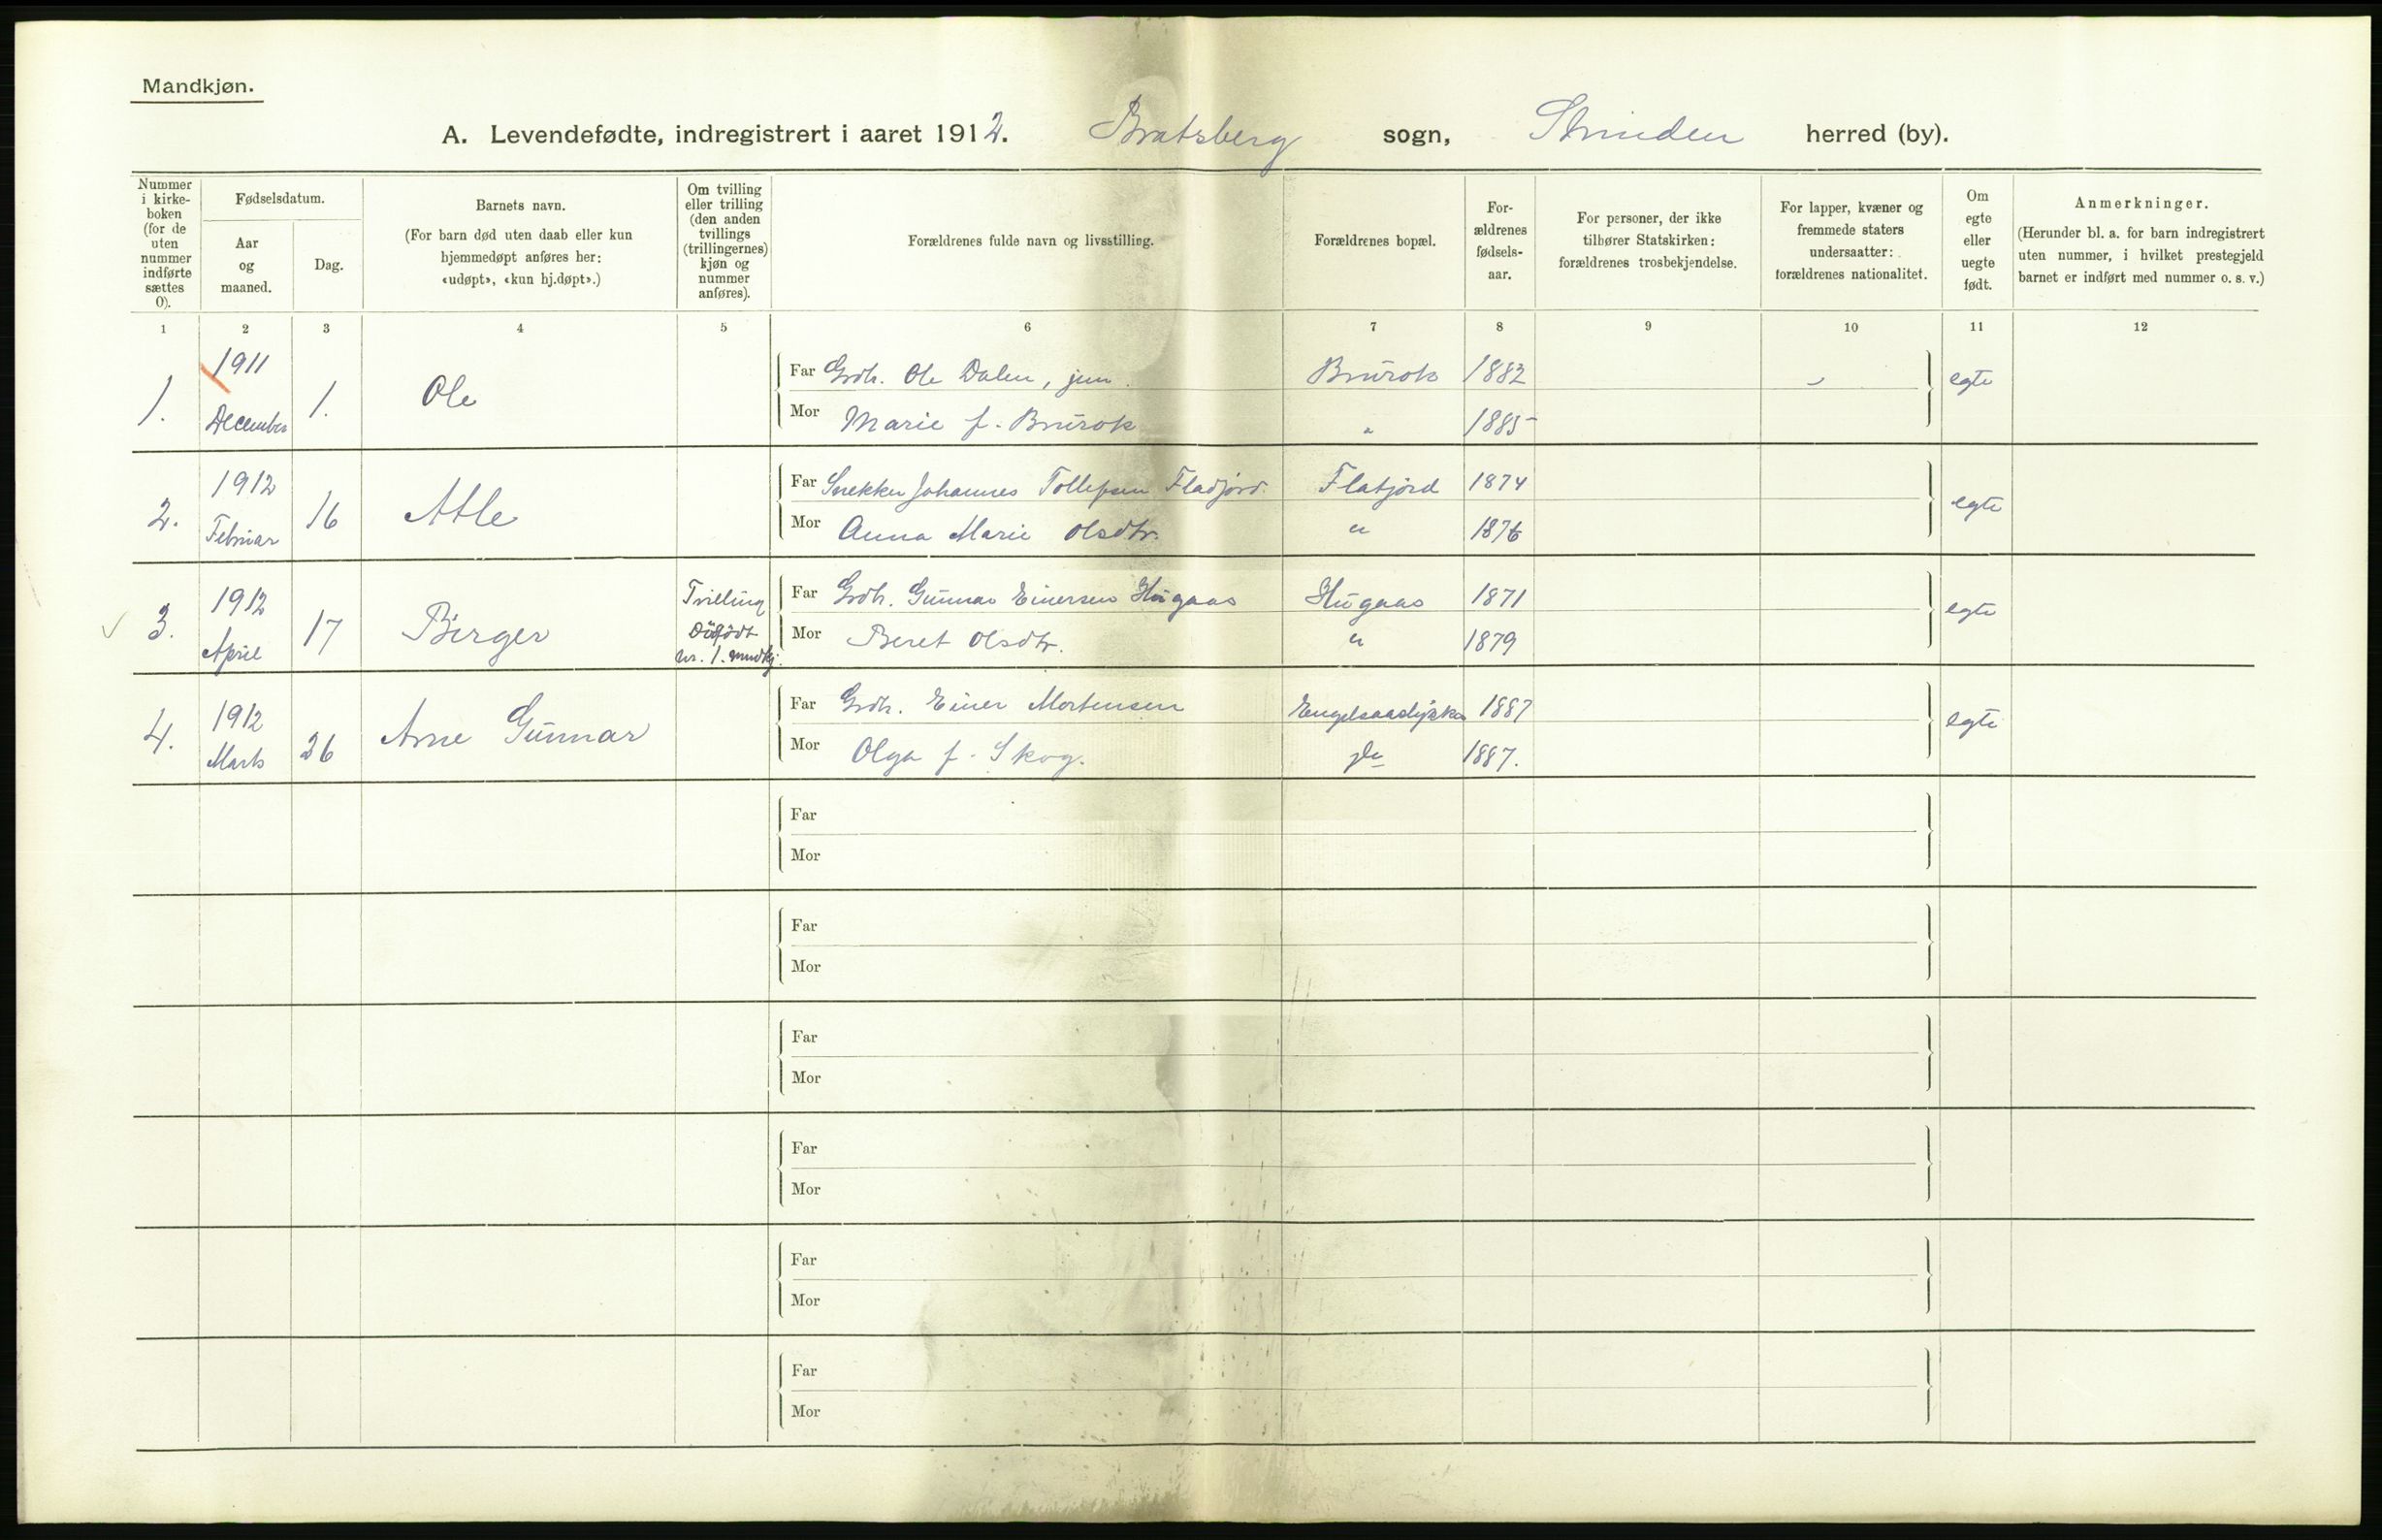 Mandkjøn.
A. Levendefødte, indregistrert i aaret 1912. Bratsberg sogn, Strinden herred (by).
Nummer i kirke- boken (for de uten nummer indførte sættes 0).
Fødselsdatum.
Aar og maaned.
Dag.
Barnets navn.
(For barn død uten daab eller kun hjemmedøpt anføres her: «udøpt», «kun hj.døpt».)
Om tvilling eller trilling (den anden tvillings (trillingernes) kjøn og nummer anføres).
Forældrenes fulde navn og livsstilling.
Forældrenes bopæl.
For- ældrenes fødsels- aar.
For personer, der ikke tilhører Statskirken: forældrenes trosbekjendelse.
For lapper, kvæner og fremmede staters undersaatter: forældrenes nationalitet.
Om egte eller uegte født.
Anmerkninger.
(Herunder bl. a. for barn indregistrert uten nummer, i hvilket prestegjeld barnet er indført med nummer o. s. v.)
1 2 3 4 5 6 7 8 9 10 11 12
1. 1911 December 1. Ole
Far Grdb. Ole Dalen, jun. Brurok 1882 egte
Mor Marie f. Brurok " 1885
2. 1912 Februar 16 Atle
Far Snekker Johannes Tollefsen Fladjord. Flatjord 1874 egte
Mor Anna Marie Olsdtr. " 1876
3. 1912 April 17 Birger Tvilling Dödfödt nr. 1. mndkj.
Far Grdb. Gunnar Einersen Hugaas Hugaas 1871 egte
Mor Beret Olsdtr. " 1879
4. 1912 Marts 26 Arne Gunnar
Far Grdb. Einer Mortensen 1887 egte
Mor Olga f. Skog. do 1887.
Far
Mor
Far
Mor
Far
Mor
Far
Mor
Far
Mor
Far
Mor